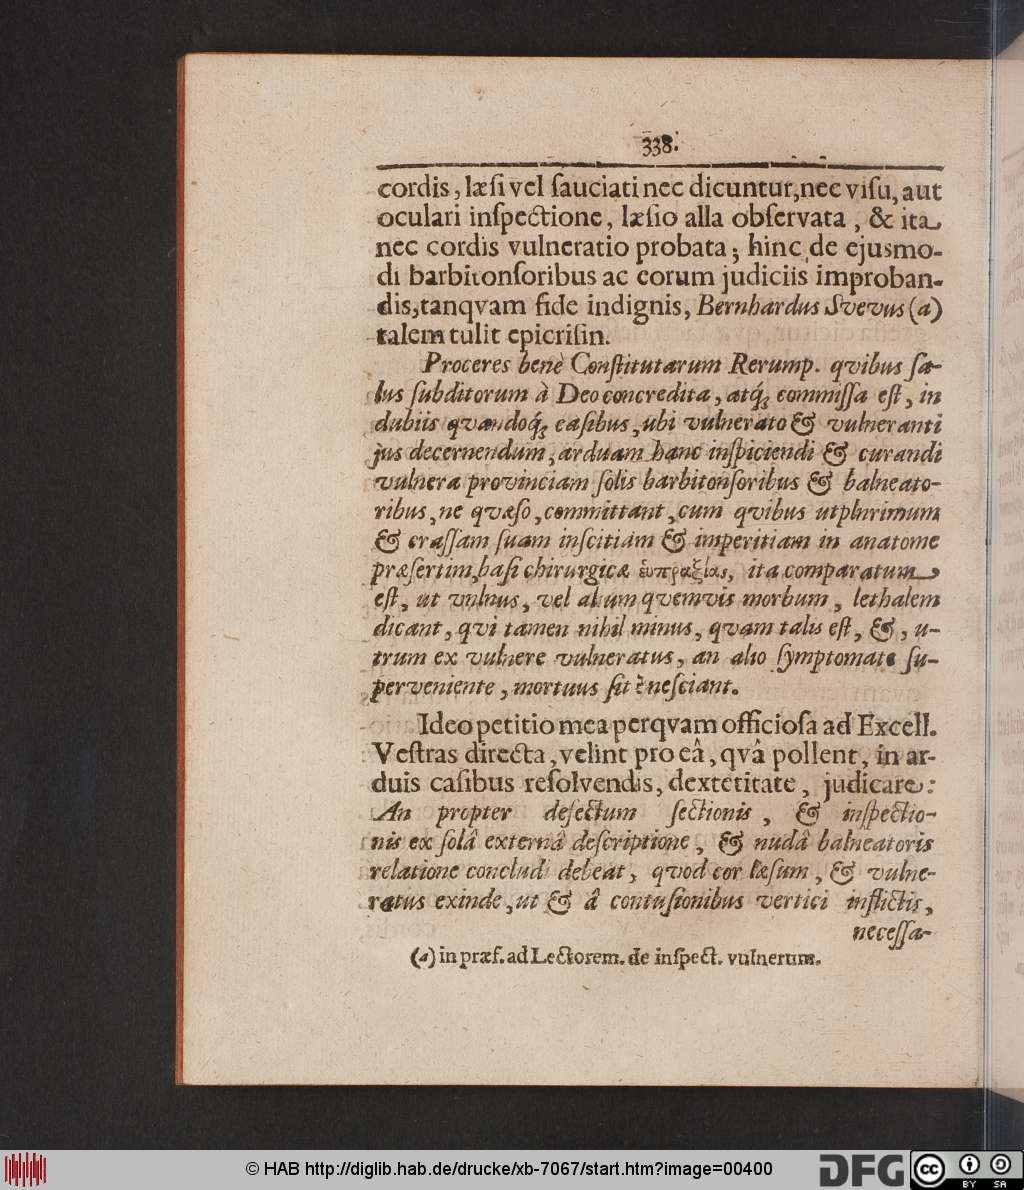 338.
cordis, læſi vel ſauciati nec dicuntur, nec viſu, aut
oculari inſpectione, læſio alla obſervata, & ita
nec cordis vulneratio probata; hinc de ejusmo-
di barbitonſoribus ac eorum judiciis improban-
dis, tanqvam fide indignis, Bernhardus Svevus (a)
talem tulit epicriſin.
Proceres benè Conſtitutarum Rerump. qvibus ſa-
lus ſubditorum à Deo concredita, atq́; commiſſa eſt, in
dubiis qvandoq́; caſibus, ubi vulnerato & vulneranti
jus decernendum, arduam hanc inſpiciendi & curandi
vulnera provinciam ſolis barbitonſoribus & balneato-
ribus, ne qvæſo, committant, cum qvibus utplurimum
& craſſam ſuam inſcitiam & imperitiam in anatome
præſertim, baſi chirurgicæ ἐυπραξίας, ita comparatum
eſt, ut vulnus, vel alium qvemvis morbum, lethalem
dicant, qvi tamen nihil minus, qvam talis eſt, &, u-
trum ex vulnere vulneratus, an alio ſymptomate ſu-
perveniente, mortuus ſit è neſciant.
Ideo petitio mea perqvam officioſa ad Excell.
Veſtras directa, velint pro eâ, qvâ pollent, in ar-
duis caſibus reſolvendis, dextetitate, judicare:
An propter defectum ſectionis, & inſpectio-
nis ex ſolâ externâ deſcriptione, & nudâ balneatoris
relatione concludi debeat, qvod cor læſum, & vulne-
ratus exinde, ut & â contuſionibus vertici inflictis,
neceſſa-
(a) in præf. ad Lectorem. de inſpect. vulnerum.
© HAB http://diglib.hab.de/drucke/xb-7067/start.htm?image=00400
DFG
cc BY SA